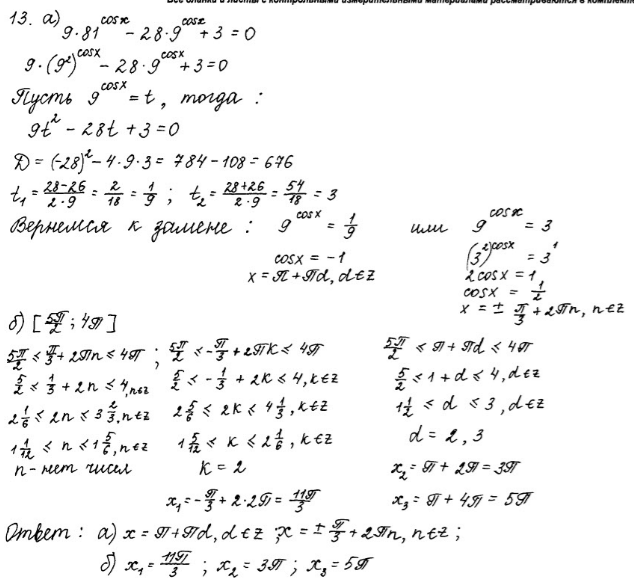 Все бланки и листы с контрольными измерительными материалами рассматриваются в комплекте
13. а) 9·81^cosx − 28·9^cosx + 3 = 0
9·(9²)^cosx − 28·9^cosx + 3 = 0
Пусть 9^cosx = t, тогда :
9t² − 28t + 3 = 0
D = (−28)² − 4·9·3 = 784 − 108 = 676
t₁ = (28−26)/(2·9) = 2/18 = 1/9 ; t₂ = (28+26)/(2·9) = 54/18 = 3
Вернемся к замене : 9^cosx = 1/9 или 9^cosx = 3
cosx = −1
x = π + πd, d∈z
(3²)^cosx = 3¹
2cosx = 1
cosx = 1/2
x = ± π/3 + 2πn, n∈z
б) [5π/2 ; 4π]
5π/2 ≤ π/3 + 2πn ≤ 4π ;
5/2 ≤ 1/3 + 2n ≤ 4, n∈z
2 1/6 ≤ 2n ≤ 3 2/3, n∈z
1 1/12 ≤ n ≤ 1 5/6, n∈z
n - нет чисел
5π/2 ≤ −π/3 + 2πk ≤ 4π
5/2 ≤ −1/3 + 2k ≤ 4, k∈z
2 5/6 ≤ 2k ≤ 4 1/3, k∈z
1 5/12 ≤ k ≤ 2 1/6, k∈z
k = 2
x₁ = −π/3 + 2·2π = 11π/3
5π/2 ≤ π + πd ≤ 4π
5/2 ≤ 1 + d ≤ 4, d∈z
1 1/2 ≤ d ≤ 3, d∈z
d = 2, 3
x₂ = π + 2π = 3π
x₃ = π + 4π = 5π
Ответ : а) x = π + πd, d∈z ; x = ± π/3 + 2πn, n∈z ;
б) x₁ = 11π/3 ; x₂ = 3π ; x₃ = 5π